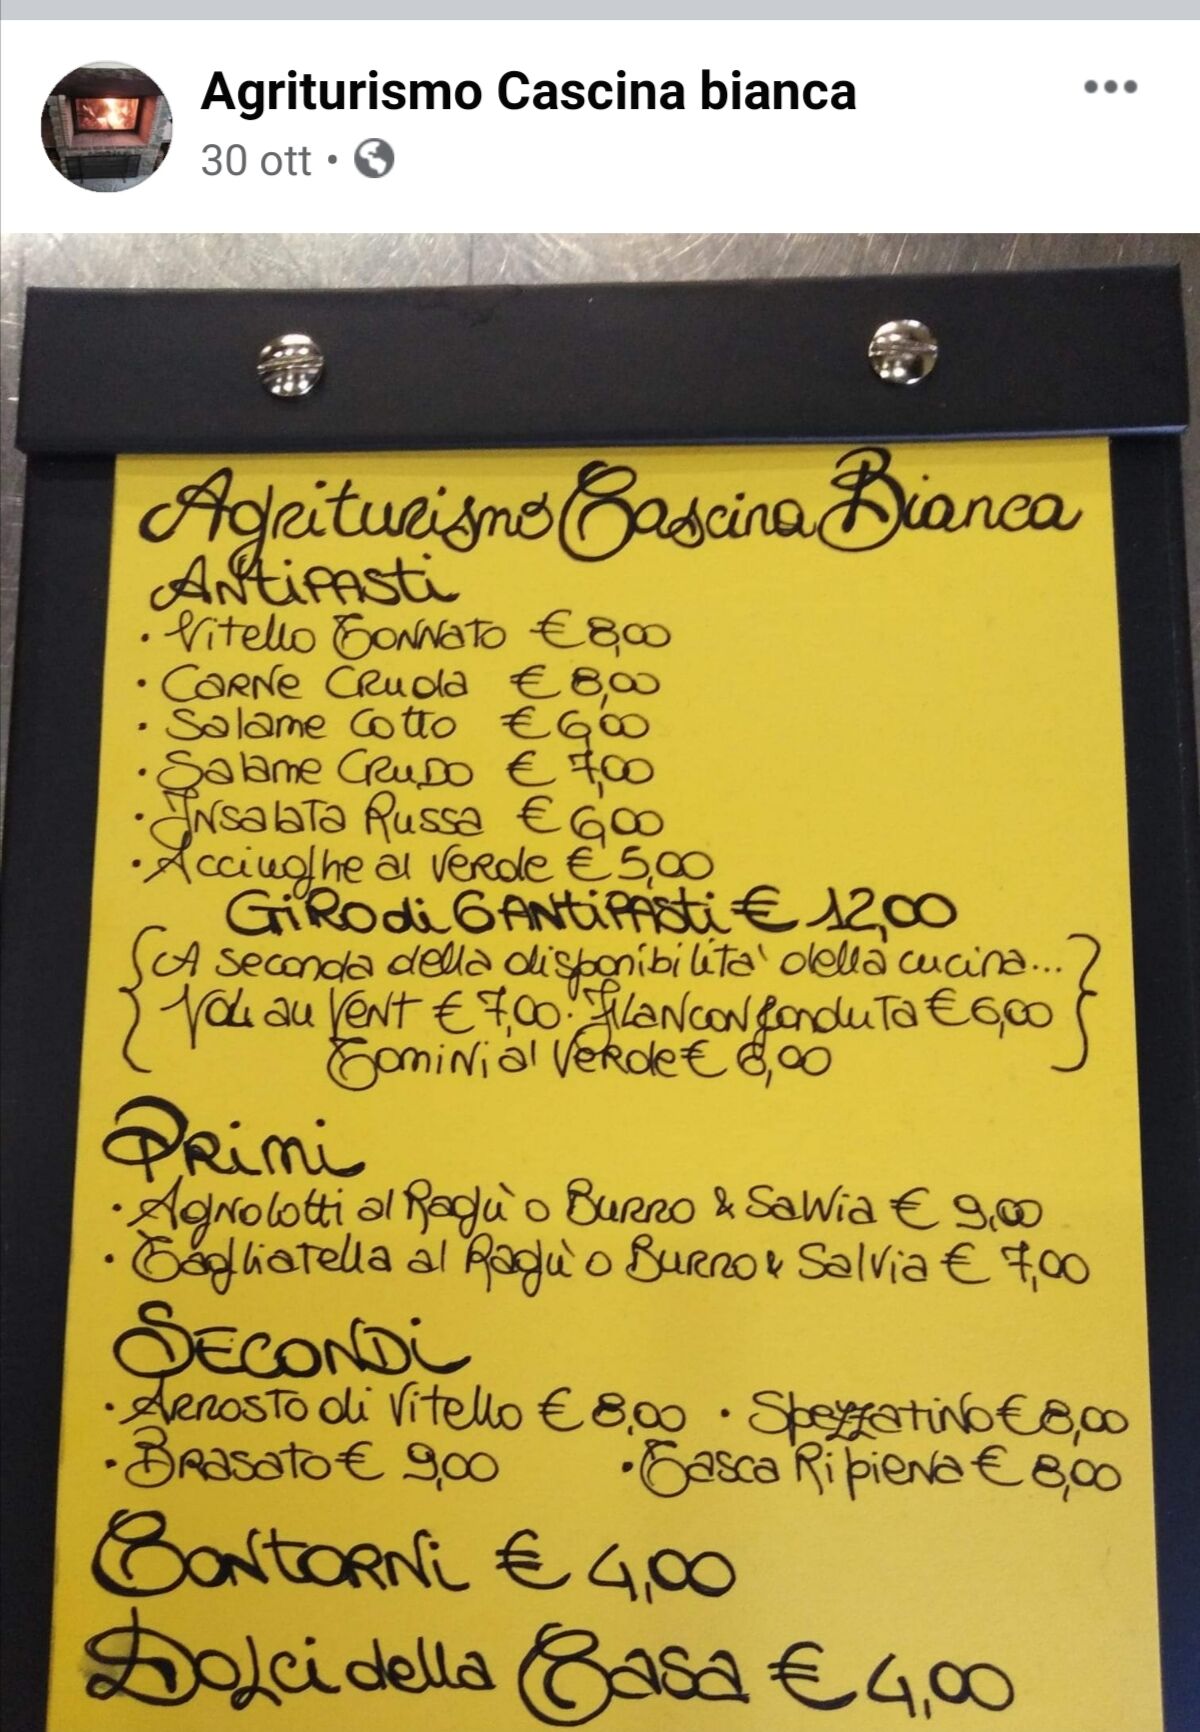 Agriturismo Cascina bianca
30 ott •
Agriturismo Cascina Bianca
Antipasti
• Vitello Tonnato € 8,00
• Carne Cruda € 8,00
• Salame Cotto € 6,00
• Salame Crudo € 7,00
• Insalata Russa € 6,00
• Acciughe al Verde € 5,00
Giro di 6 Antipasti € 12,00
{A seconda della disponibilità della cucina...}
Vol au Vent € 7,00 • Flan con fonduta € 6,00
Tomini al Verde €
Primi
• Agnolotti al Ragù o Burro & Salvia € 9,00
• Tagliatella al Ragù o Burro & Salvia € 7,00
Secondi
• Arrosto di Vitello € 8,00 • Spezzatino € 8,00
• Brasato € 9,00 • Tasca Ripiena € 8,00
Contorni € 4,00
Dolci della Casa € 4,00